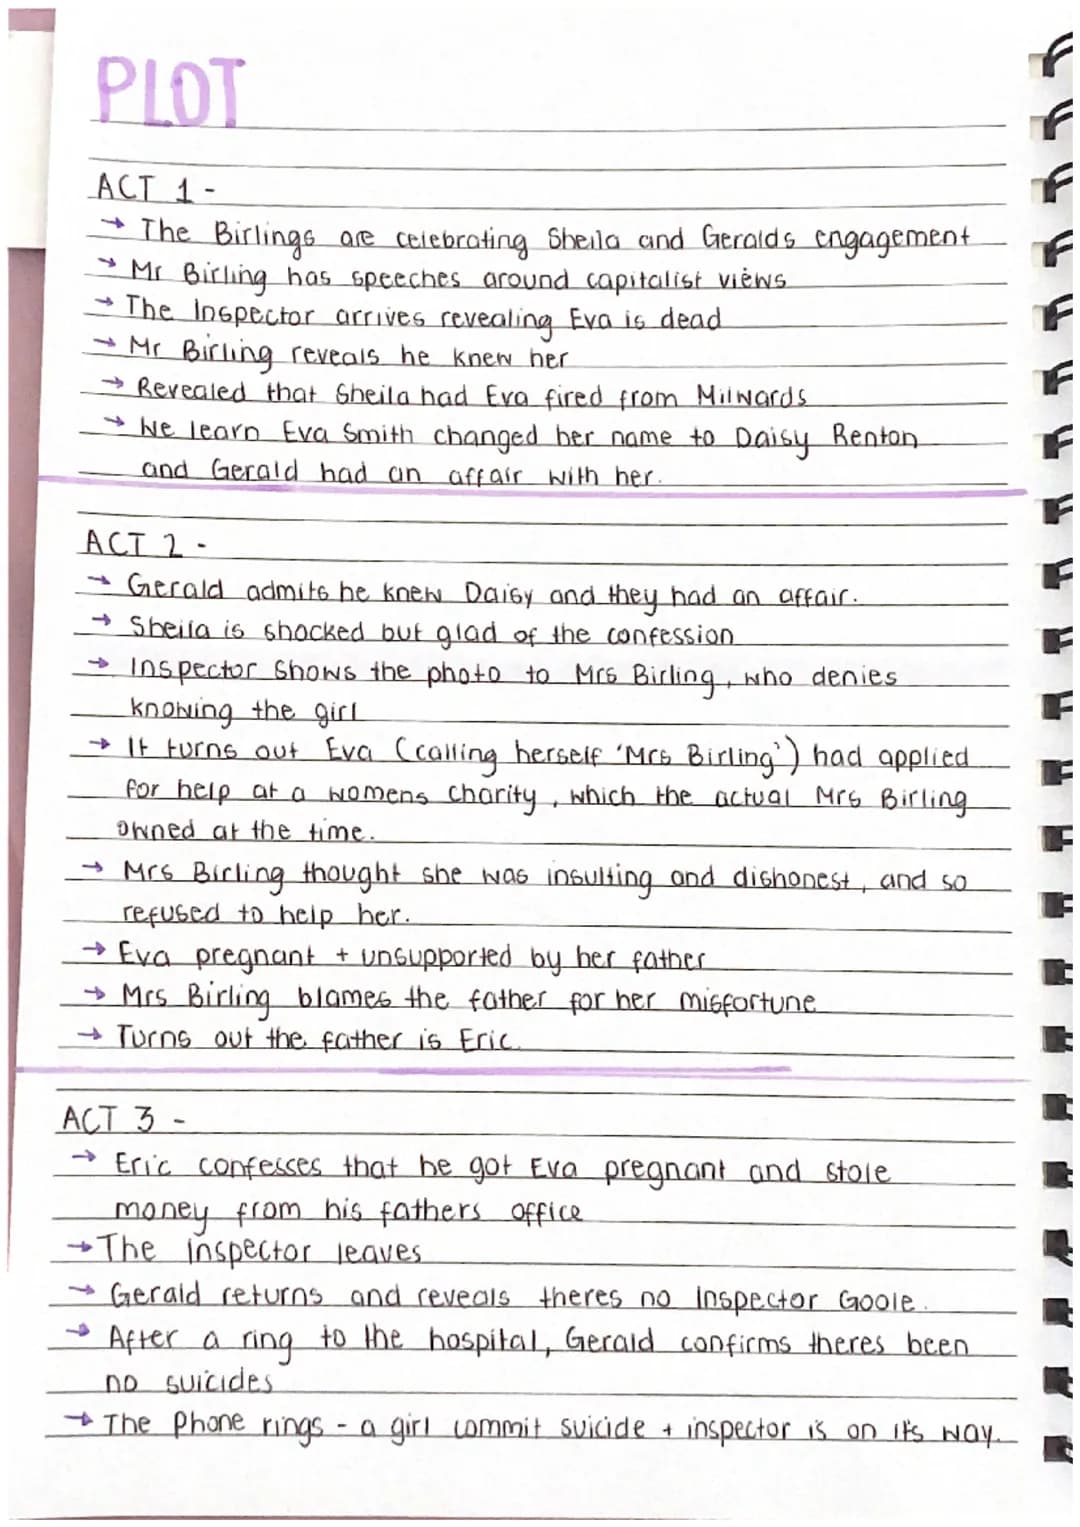 PLOT
ACT 1 -
→ The Birlings are celebrating Sheila and Geralds engagement
→ Mr Birling has speeches around capitalist views
→ The Inspector arrives revealing Eva is dead
→ Mr Birling reveals he knew her
→ Revealed that Sheila had Eva fired from Milwards
→ We learn Eva Smith changed her name to Daisy Renton
and Gerald had an affair with her.
ACT 2 -
→ Gerald admits he knew Daisy and they had an affair.
→ Sheila is shocked but glad of the confession
→ Inspector shows the photo to Mrs Birling, who denies
knowing the girl
→ It turns out Eva (calling herself 'Mrs Birling') had applied
for help at a womens charity, which the actual Mrs Birling
owned at the time.
→ Mrs Birling thought she was insulting and dishonest, and so
refused to help her.
→ Eva pregnant + unsupported by her father
→ Mrs Birling blames the father for her misfortune
→ Turns out the father is Eric.
ACT 3 -
→ Eric confesses that he got Eva pregnant and stole
money from his fathers office
→ The inspector leaves
→ Gerald returns and reveals theres no Inspector Goole.
→ After a ring to the hospital, Gerald confirms theres been
no suicides
→ The Phone rings - a girl commit suicide + inspector is on it's way.